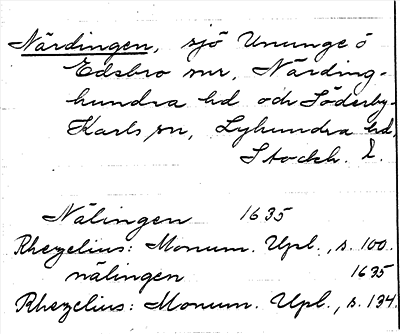 Närdingen, sjö Ununge ö
Edsbro snr, Närding-
hundra hd och Söderby-
Karls sn, Lyhundra hd,
Stockh. l.
Nälingen 1635
Rhezelius: Monum. Upl., s. 100.
nälingen 1635
Rhezelius: Monum. Upl., s. 134.